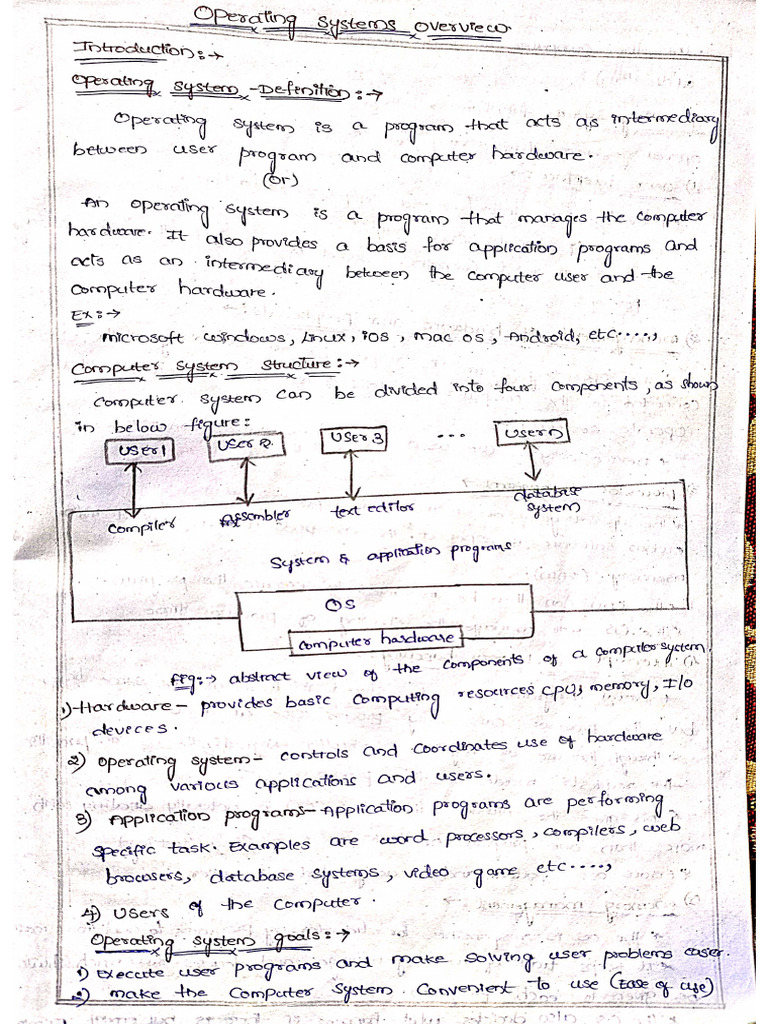 Operating Systems Overview
Introduction:→
Operating System -Definition:→
Operating system is a program that acts as intermediary
between user program and computer hardware.
(or)
An operating system is a program that manages the computer
hardware. It also provides a basis for application programs and
acts as an intermediary between the computer user and the
computer hardware.
Ex:→
microsoft windows, Linux, iOS, mac OS, Android, etc.....,
Computer System Structure:→
Computer system can be divided into four components, as shown
in below figure:
User1 User 2 User 3 ... User n
Compiler Assembler text editor database
system
System & application programs
OS
Computer hardware
fig:→ abstract view of the components of a computer system.
1) Hardware - provides basic computing resources CPU, memory, I/O
devices.
2) Operating system - controls and coordinates use of hardware
among various applications and users.
3) Application programs - Application programs are performing
specific task. Examples are word processors, compilers, web
browsers, database systems, video game etc.....,
4) Users of the computer.
Operating system goals:→
1) Execute user programs and make solving user problems easer.
2) make the computer system convenient to use (Ease of use)